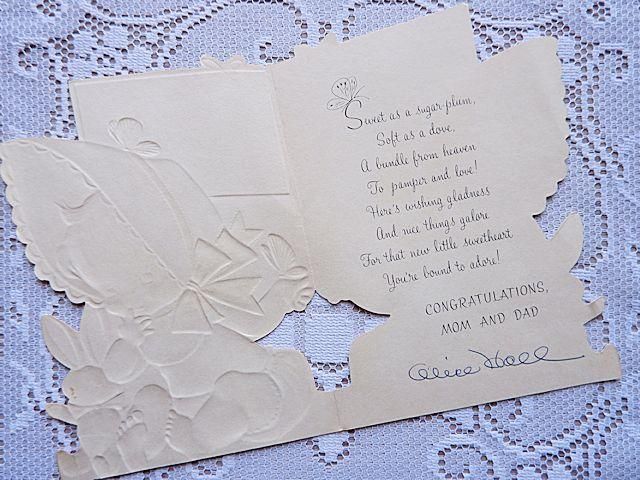 Sweet as a sugar plum,
Soft as a dove,
A bundle from heaven
To pamper and love!
Here's wishing gladness
And nice things galore
For that new little sweetheart
You're bound to adore!
CONGRATULATIONS,
MOM AND DAD
Alice Hall